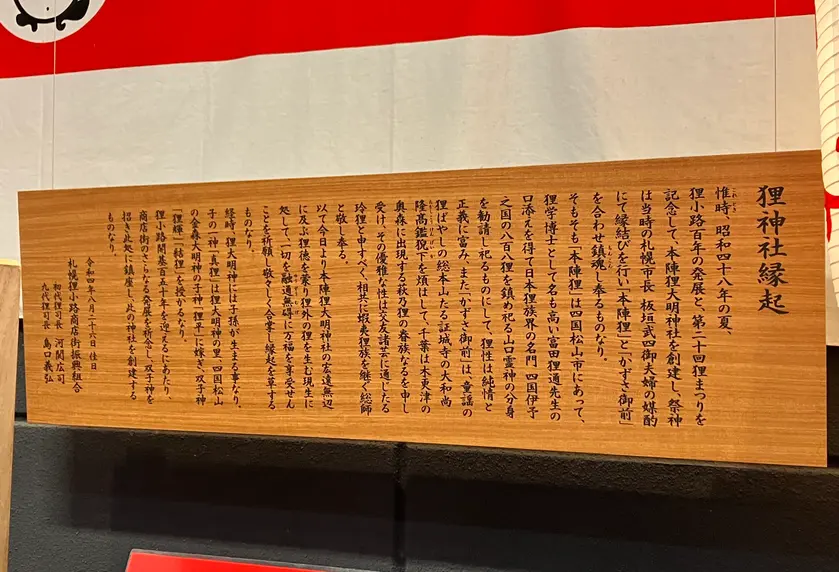 狸神社縁起
惟時、昭和四十八年の夏、
狸小路百年の発展と、第二十回狸まつりを
記念して、本陣狸大明神社を創建し、祭神
は当時の札幌市長 板垣武四御夫婦の媒酌
にて縁結びを行い「本陣狸」と「かずさ御前」
を合わせ鎮魂し奉るものなり。
そもそも「本陣狸」は四国松山市にあって、
狸学博士として名も高い富田狸通先生の
口添えを得て日本狸族界の名門、四国伊予
之国の八百八狸を鎮め祀る山口霊神の分身
を勧請し祀るものにして、狸性は純情と
正義に富み、また「かずさ御前」は、童謡の
狸ばやしの総本山たる証城寺の大和尚
隆高鑑猊下を煩はして、千葉は木更津の
奥森に出現する萩乃狸の眷族なるを申し
受け、その優雅な性は交友諸芸に通じたる
玲狸と申すべく、相共に蝦夷狸族を継ぐ総師
と敬し奉る。
以て今日より本陣狸大明神社の宏遠無辺
に及ぶ狸徳を蒙り狸外の狸を生む現生に
処して一切を融通無碍に万福を享受せん
ことを祈願し敬々しく合掌し縁起を草する
ものなり。
経時、狸大明神には子孫が生まる事なり、
子の一神「真狸」は狸大明神の里、四国松山
の金森大明神の子神「狸平」に嫁ぎ、双子神
「狸輝」「結狸」を授かるなり。
狸小路開基百五十年を迎えるにあたり、
商店街のさらなる発展を祈念し、双子神を
招き此処に鎮座し、此の神社を創建する
ものなり。
令和四年八月二十六日 佳日
札幌狸小路商店街振興組合
初代狸司長 河関広司
九代狸司長 島口義弘